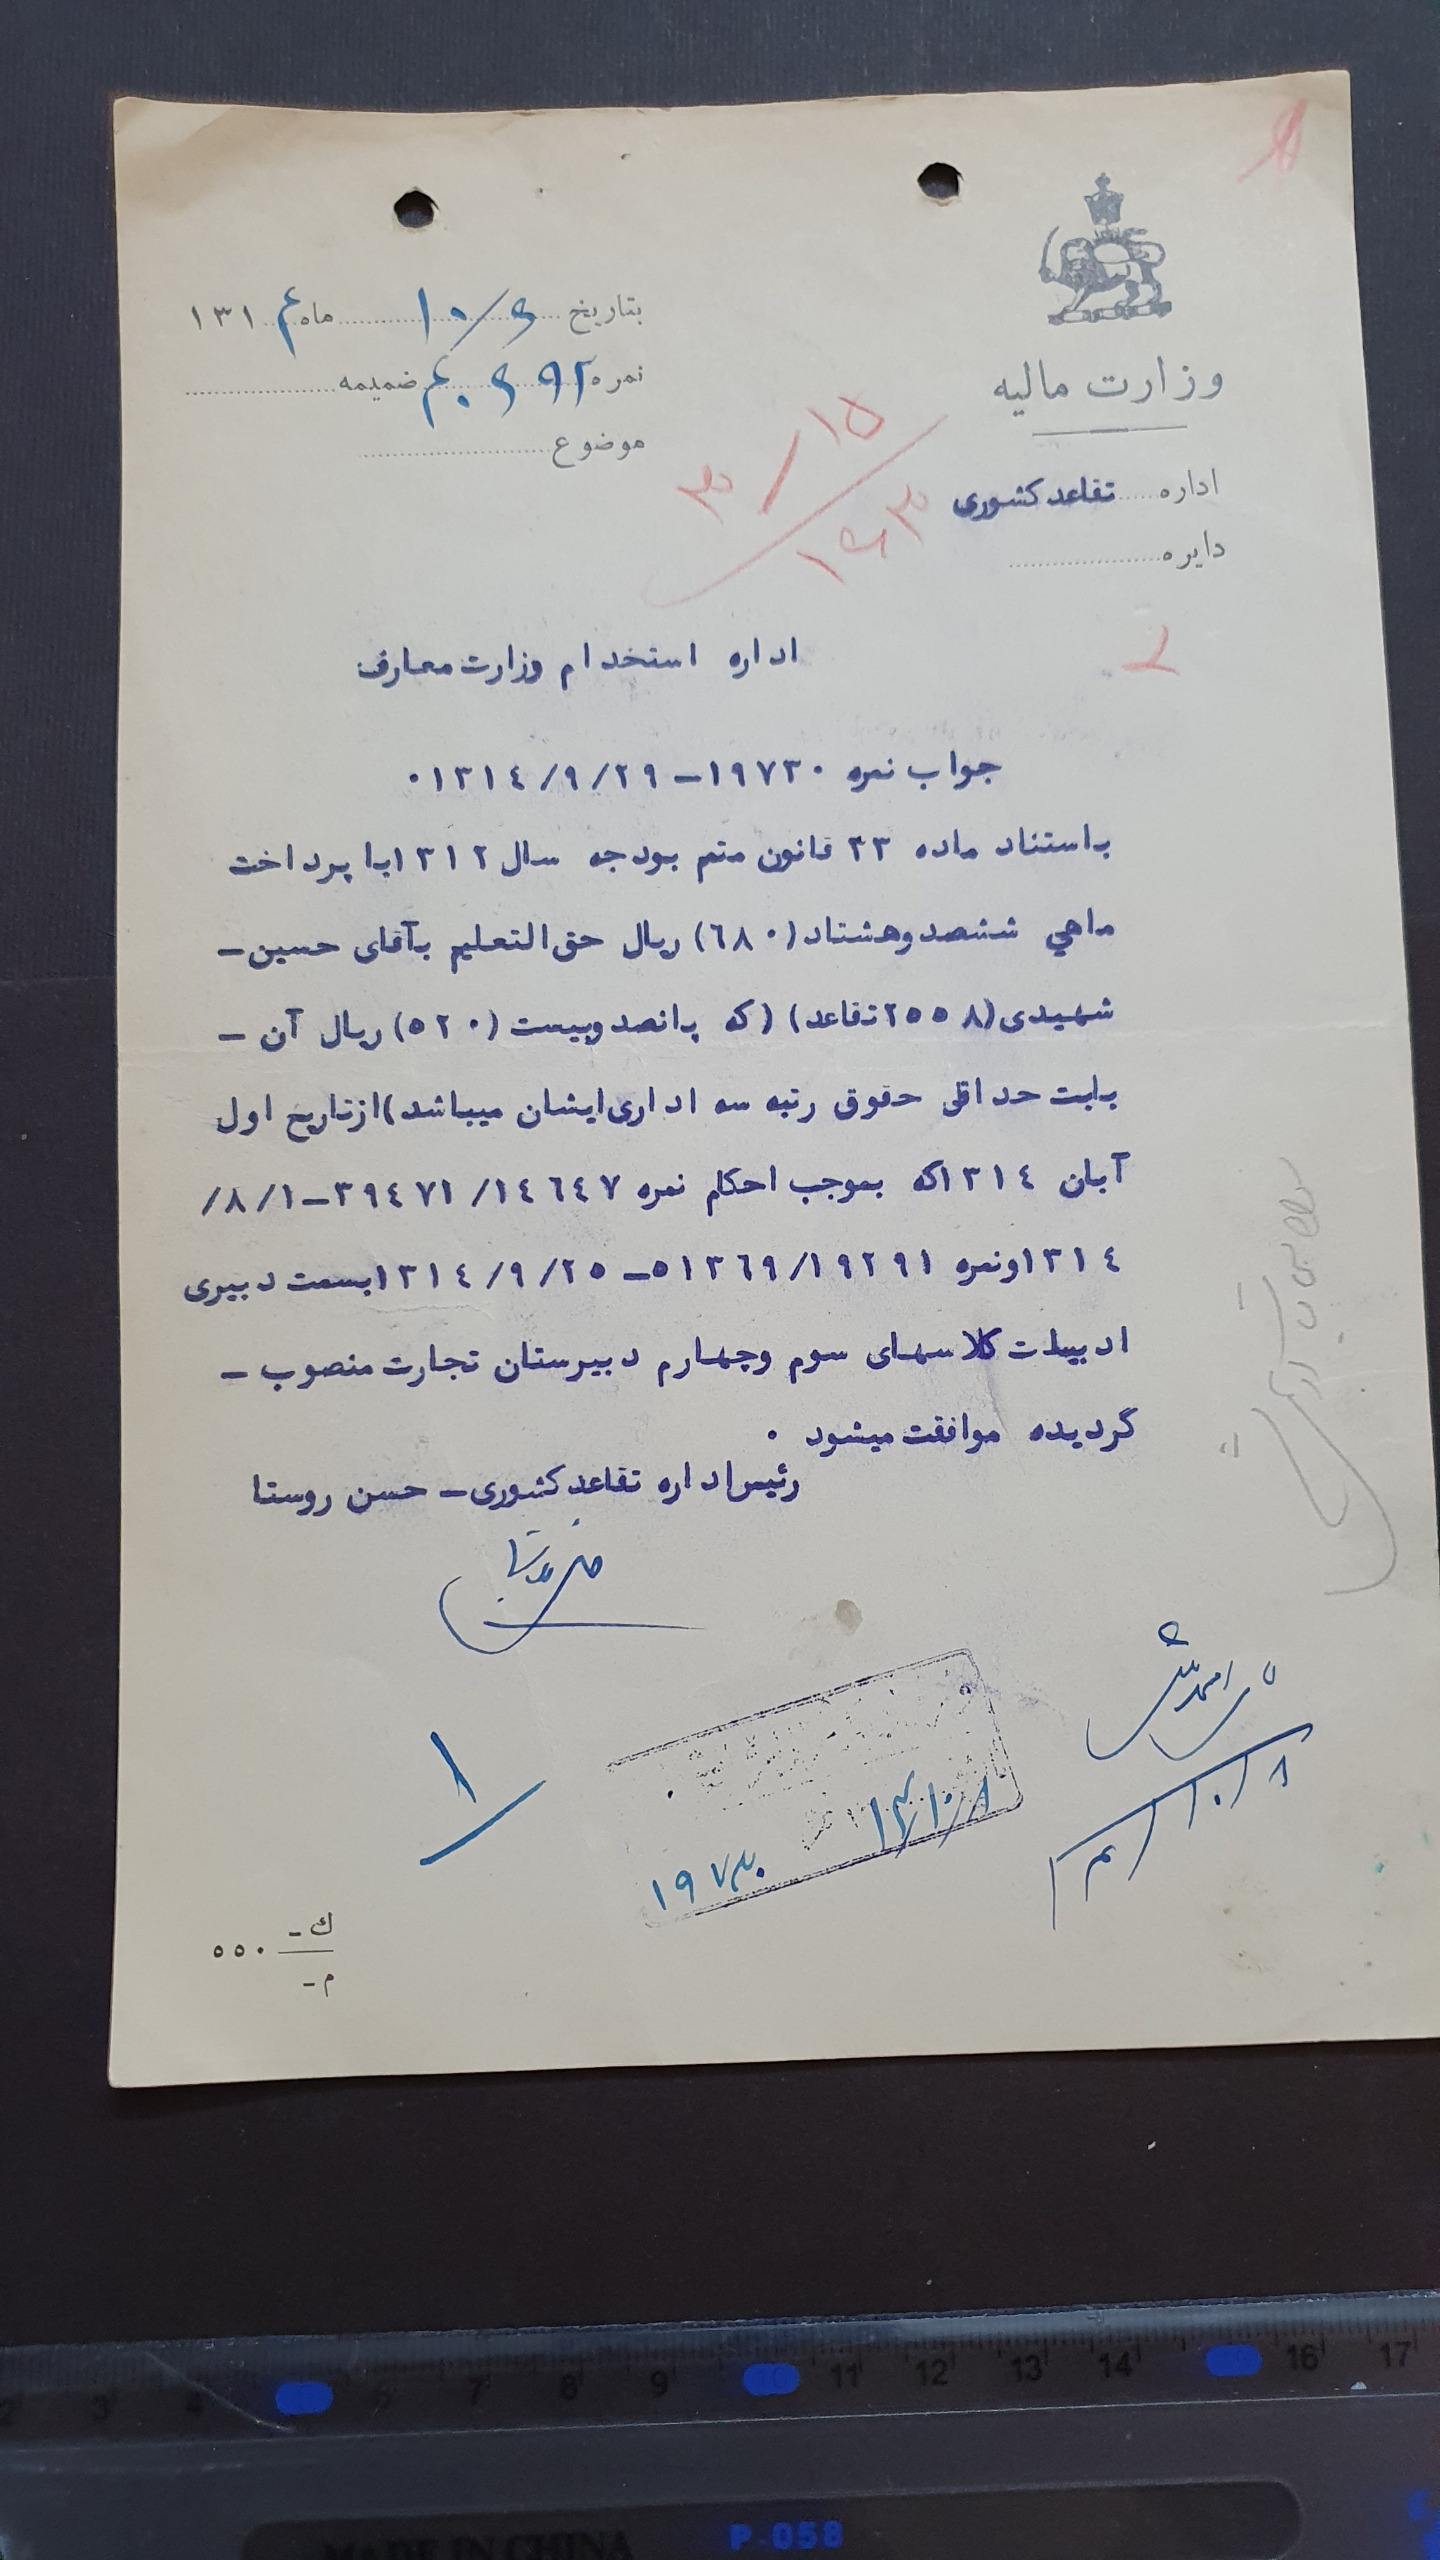 وزارت مالیه
اداره تقاعد کشوری
دایره
بتاریخ ۶/۱۰ ماه ۱۳۱۴
نمره ضمیمه
موضوع
۱۵/۳
اداره استخدام وزارت معارف
جواب نمره ۱۹۷۳۰ـ ۱۳۱۴/۹/۲۹۰
باستناد ماده ۳۳ قانون متمم بودجه سال ۱۳۱۲ با پرداخت
ماهی ششصد و هشتاد (۶۸۰) ریال حق التعلیم بآقای حسین ـ
شهیدی (۲۵۵۸ تقاعد) (که پانصد و بیست (۵۲۰) ریال آن ـ
بابت حداقل حقوق رتبه سه اداری ایشان میباشد) از تاریخ اول
آبان ۱۳۱۴ که بموجب احکام نمره ۳۹۴۷۱/۱۴۶۴۷ـ ۸/۱/
۱۳۱۴ و نمره ۵۱۳۶۹/۱۹۲۹۱ـ ۱۳۱۴/۹/۲۵ بسمت دبیری
ادبیات کلاسهای سوم و چهارم دبیرستان تجارت منصوب ـ
گردیده موافقت میشود ۰
رئیس اداره تقاعد کشوری ـ حسن روستا
۱۹۷۳۰
۱
ک ـ
م ـ
۵۵۰
2 3 4 6 7 8 9 10 11 12 13 14 16 17
MADE IN CHINA
P-058